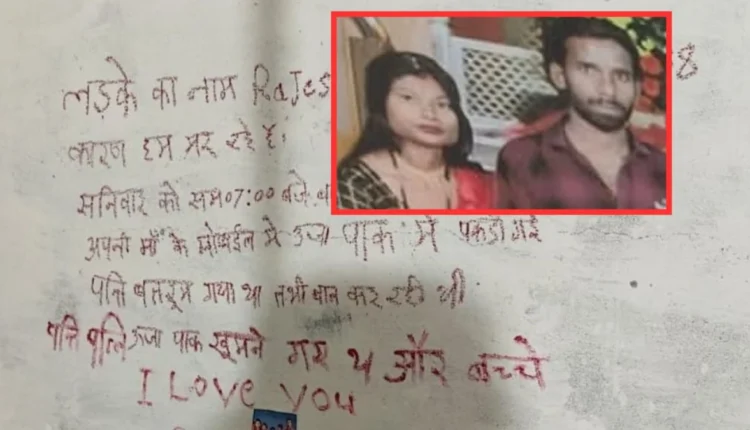 लड़के का नाम RaJes 8
कारण हम मर रहे है।
सनिवार को सम 07:00 बजे
अपनी माँ के मोबाईल मे ऊर्जा पार्क में पकड़ी गई
पत्ति बातरूम गया था तभी बात कर रही थी
पत्ति पत्नि ऊर्जा पाक घूमने गए थे और बच्चे
I Love you